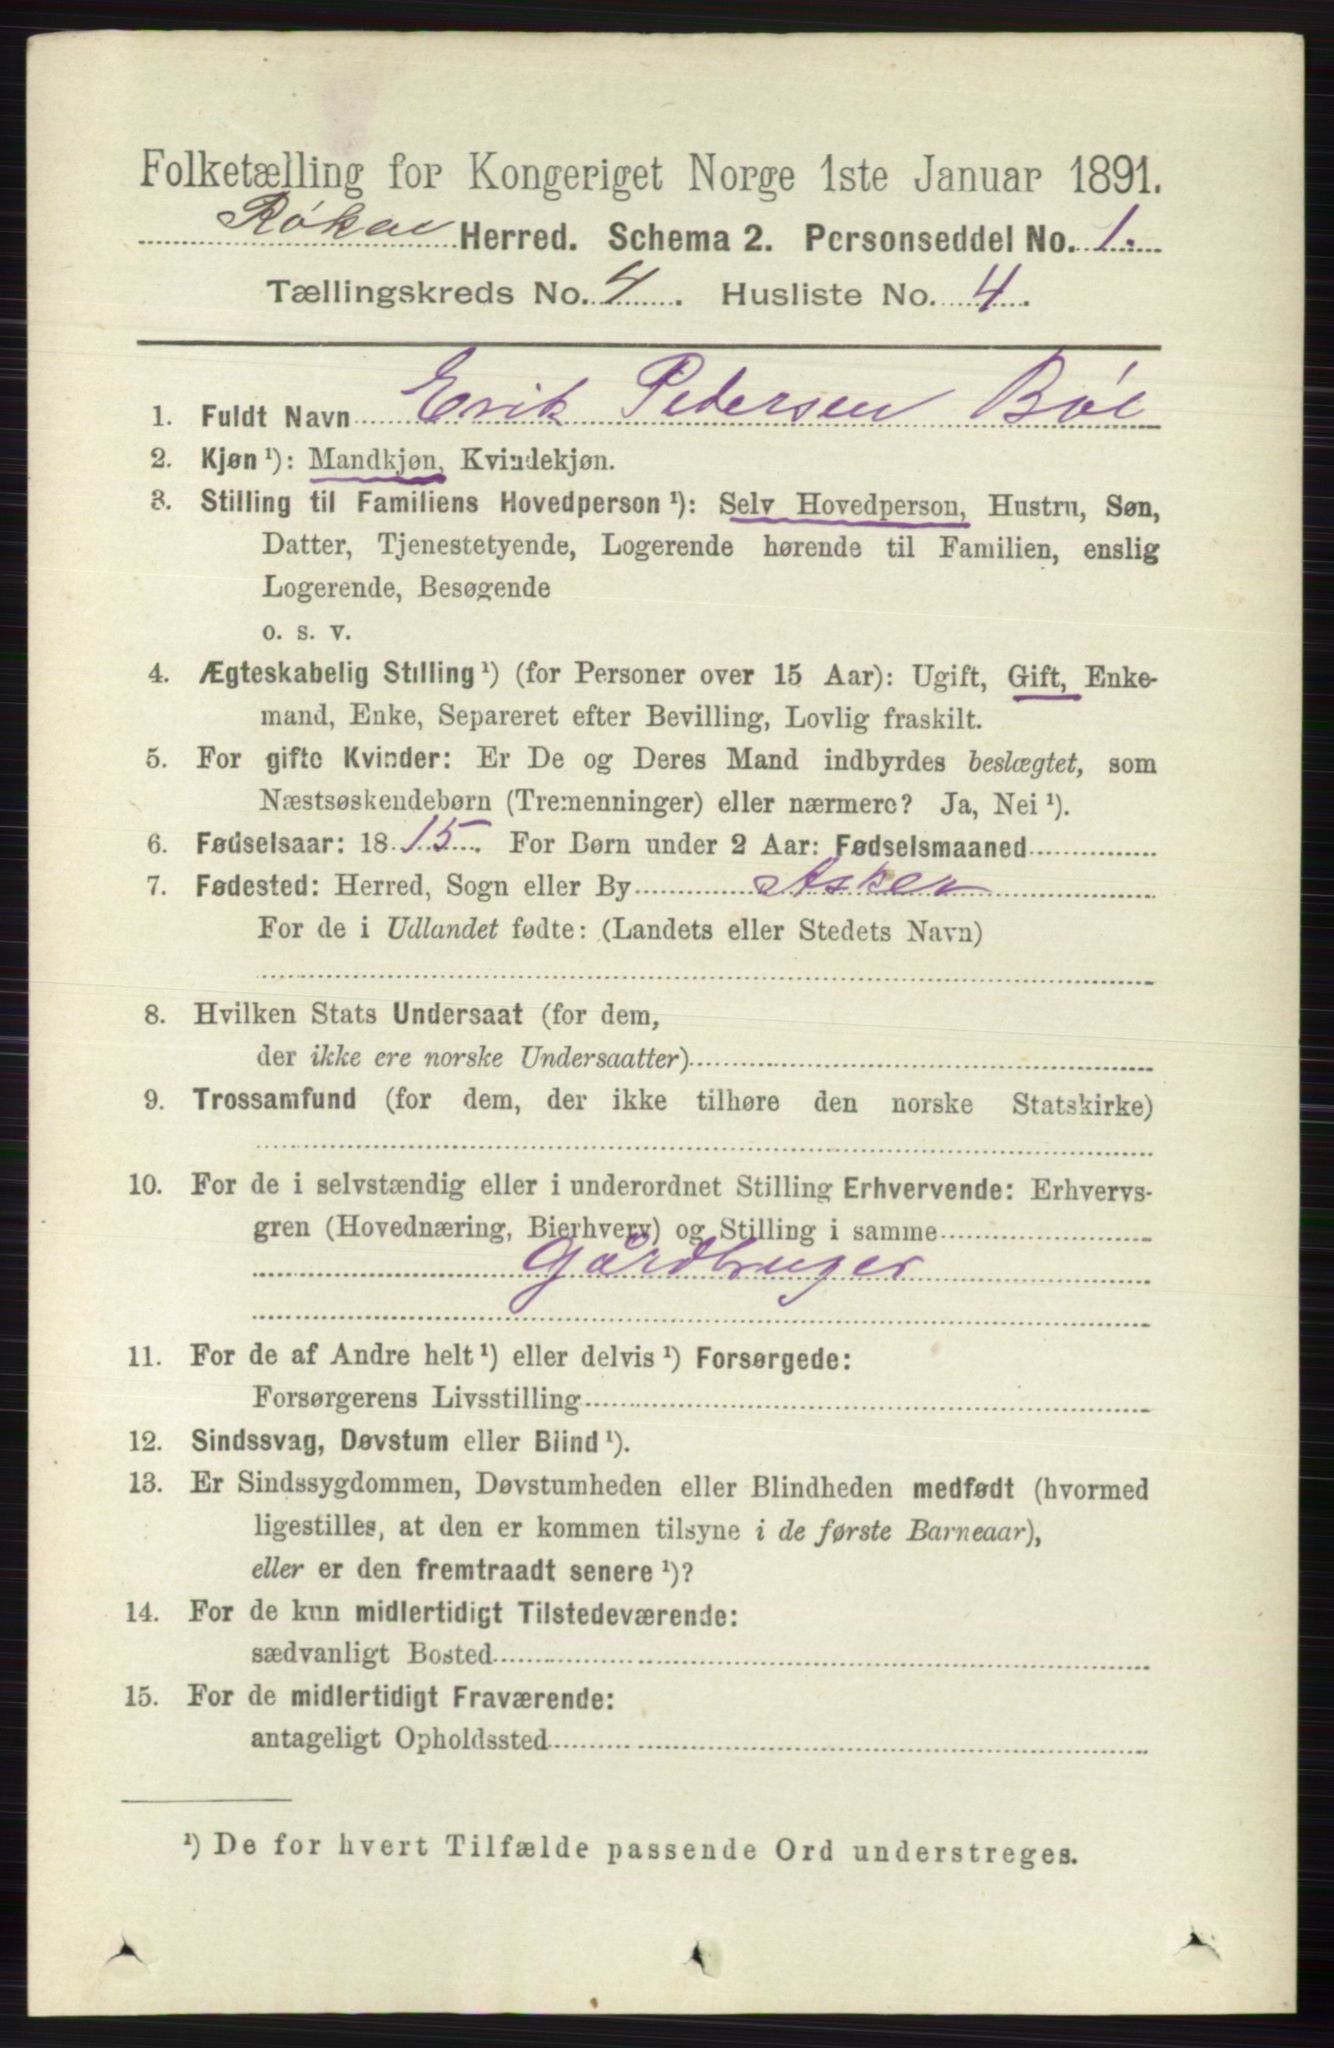 Folketælling for Kongeriget Norge 1ste Januar 1891.
Røken Herred. Schema 2. Personseddel No. 1.
Tællingskreds No. 4. Husliste No. 4.
1. Fuldt Navn Erik Pedersen Bøe
2. Kjøn¹): Mandkjøn, Kvindekjøn.
3. Stilling til Familiens Hovedperson¹): Selv Hovedperson, Hustru, Søn,
Datter, Tjenestetyende, Logerende hørende til Familien, enslig
Logerende, Besøgende
o. s. v.
4. Ægteskabelig Stilling¹) (for Personer over 15 Aar): Ugift, Gift, Enke-
mand, Enke, Separeret efter Bevilling, Lovlig fraskilt.
5. For gifte Kvinder: Er De og Deres Mand indbyrdes beslægtet, som
Næstsøskendebørn (Tremenninger) eller nærmere? Ja, Nei¹).
6. Fødselsaar: 1815. For Børn under 2 Aar: Fødselsmaaned
7. Fødested: Herred, Sogn eller By Asker
For de i Udlandet fødte: (Landets eller Stedets Navn)
8. Hvilken Stats Undersaat (for dem,
der ikke ere norske Undersaatter)
9. Trossamfund (for dem, der ikke tilhøre den norske Statskirke)
10. For de i selvstændig eller i underordnet Stilling Erhvervende: Erhvervs-
gren (Hovednæring, Bierhverv) og Stilling i samme
Gårdbruger
11. For de af Andre helt¹) eller delvis¹) Forsørgede:
Forsørgerens Livsstilling
12. Sindssvag, Døvstum eller Blind¹).
13. Er Sindssygdommen, Døvstumheden eller Blindheden medfødt (hvormed
ligestilles, at den er kommen tilsyne i de første Barneaar),
eller er den fremtraadt senere¹)?
14. For de kun midlertidigt Tilstedeværende:
sædvanligt Bosted
15. For de midlertidigt Fraværende:
antageligt Opholdssted
¹) De for hvert Tilfælde passende Ord understreges.